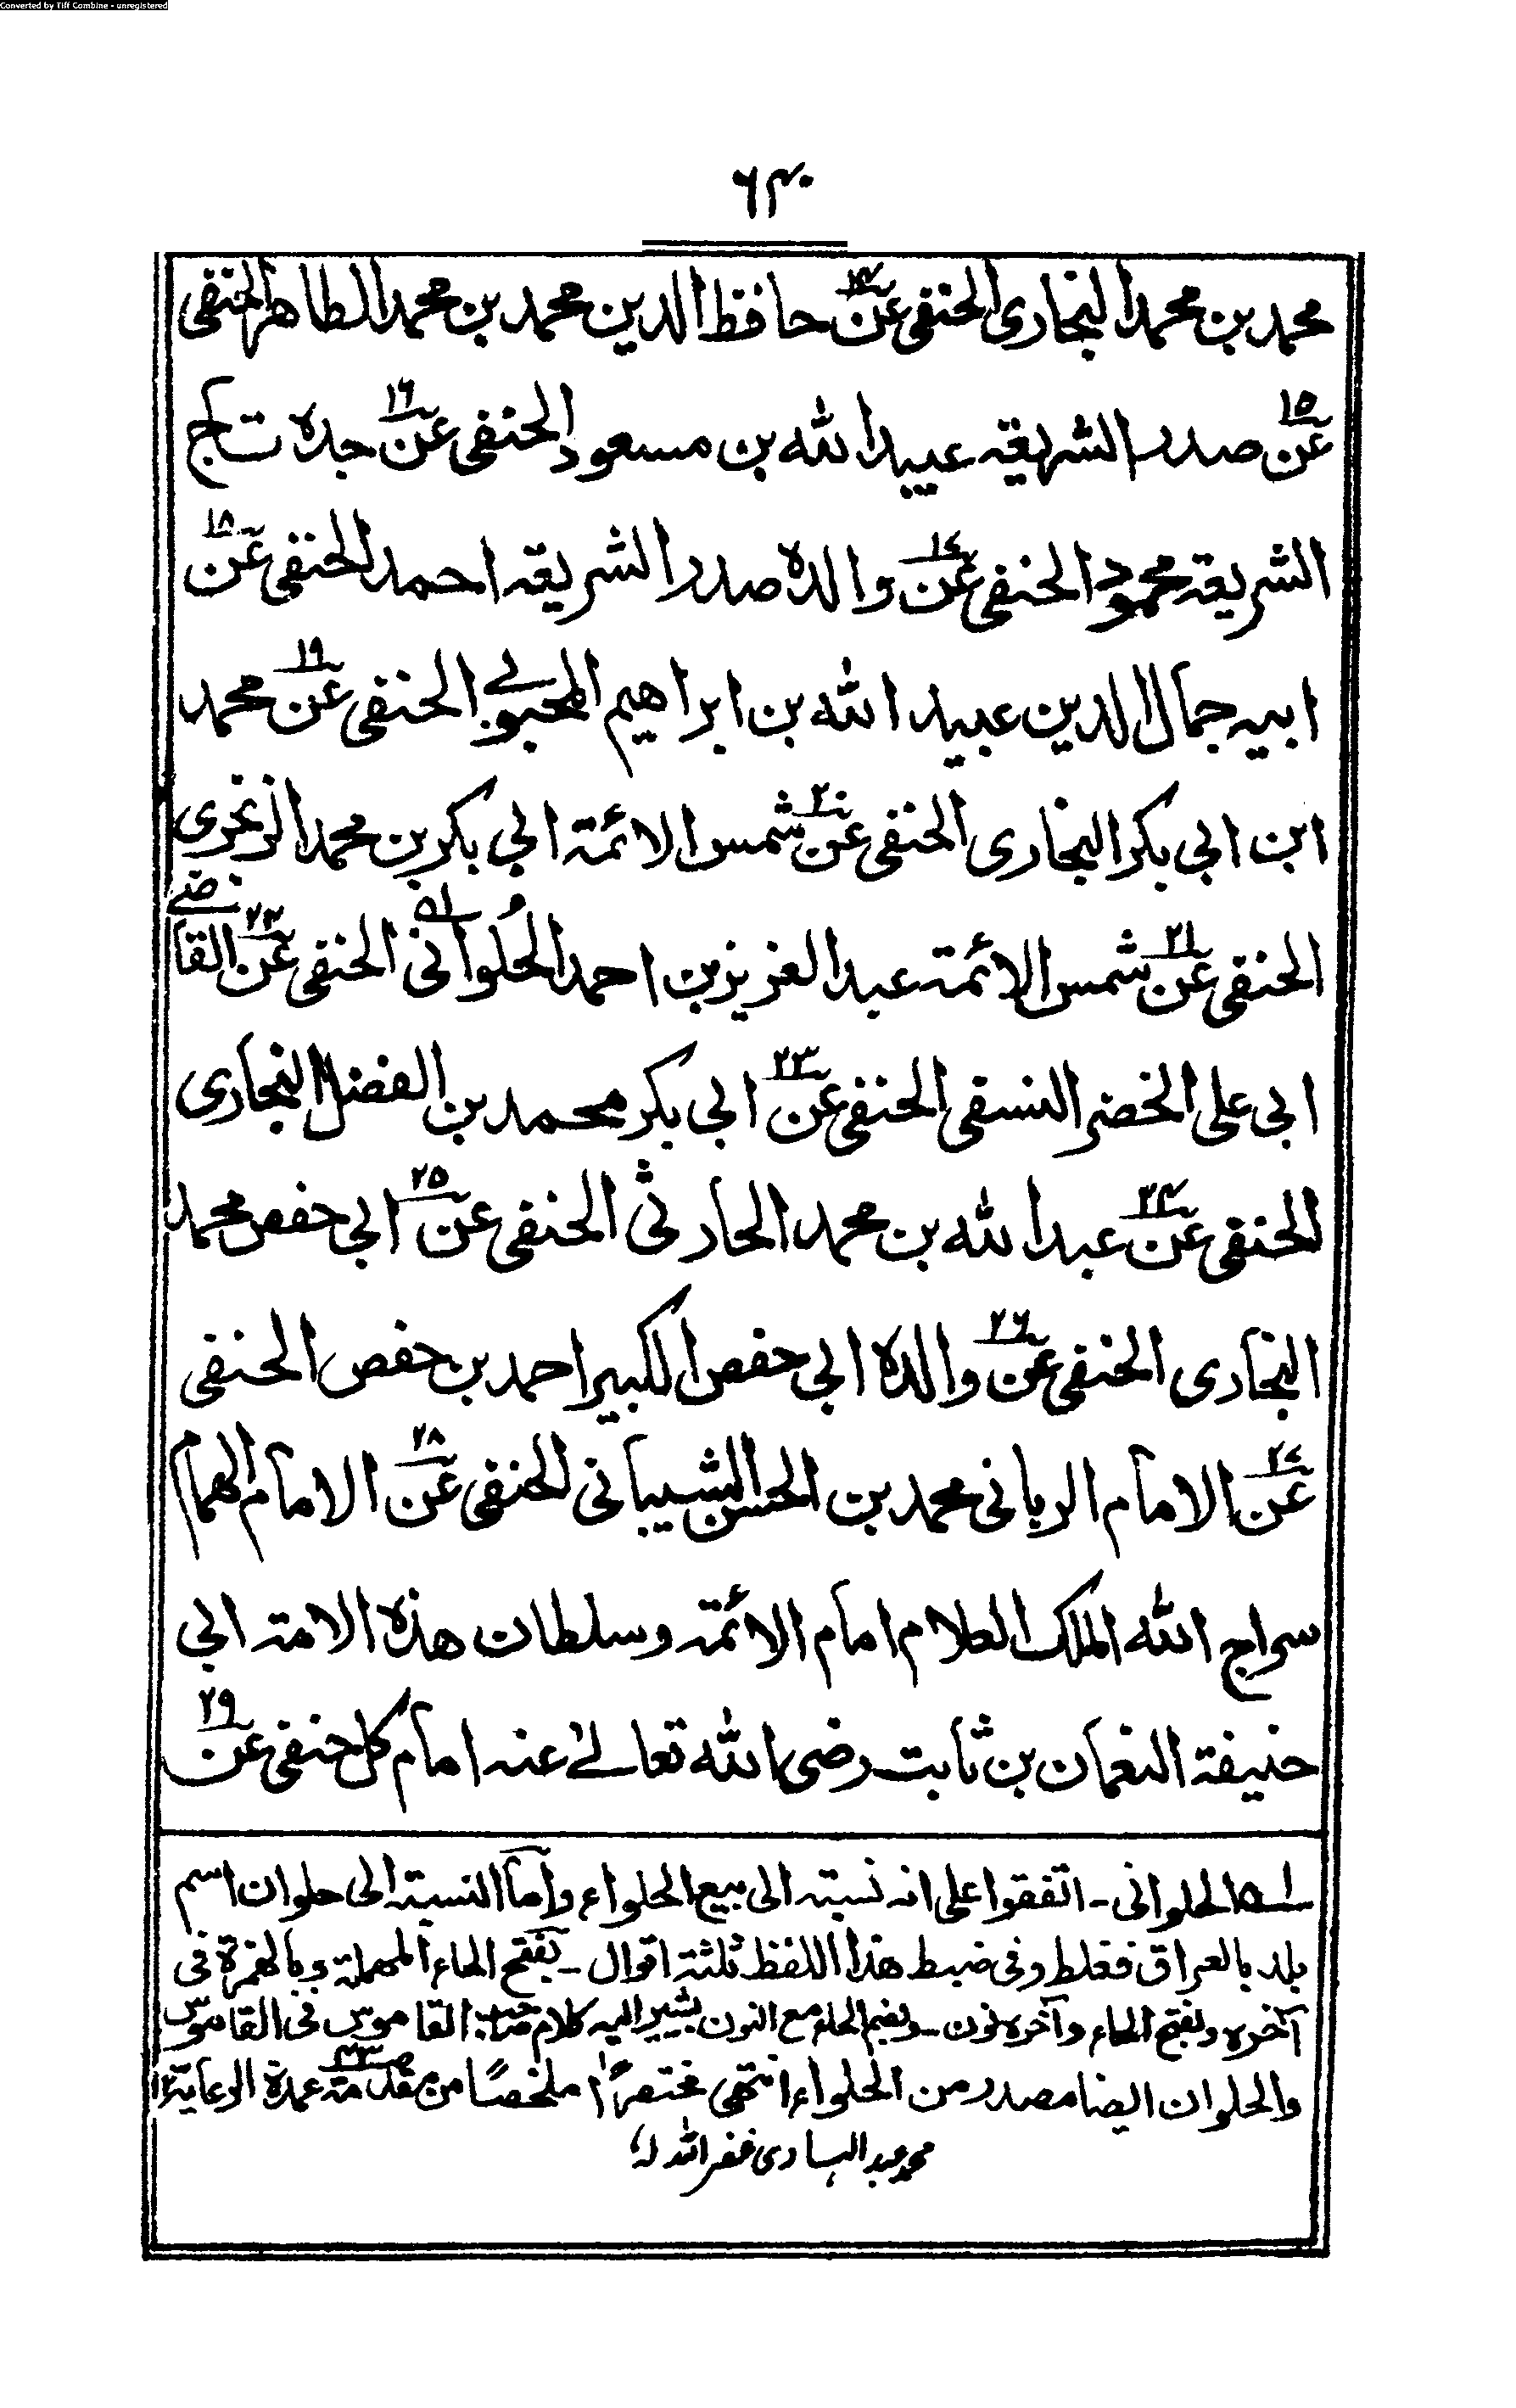 Converted by Tiff Combine - unregistered
٦٣٠
محمد بن محمد البخاری الحنفی عن۱۴ حافظ الدین محمد بن محمد الطاهر الحنفی
عن۱۵ صدر الشریعة عبید الله بن مسعود الحنفی عن۱٦ جده تاج
الشریعة محمود الحنفی عن۱۷ والده صدر الشریعة احمد الحنفی عن۱۸
ابیه جمال الدین عبید الله بن ابراهیم المحبوبی الحنفی عن۱۹ محمد
ابن ابی بکر البخاری الحنفی عن۲۰ شمس الائمة ابی بکر بن محمد الزرنجری
الحنفی عن۲۱ شمس الائمة عبد العزیز بن احمد الحُلوانی الحنفی عن۲۲ القاضی
ابی علی الخضر النسفی الحنفی عن۲۳ ابی بکر محمد بن الفضل البخاری
الحنفی عن۲۴ عبد الله بن محمد الحارثی الحنفی عن۲۵ ابی حفص محمد
البخاری الحنفی عن۲٦ والده ابی حفص الکبیر احمد بن حفص الحنفی
عن۲۷ الامام الربانی محمد بن الحسن الشیبانی الحنفی عن۲۸ الامام الهمام
سراج الله الملک العلام امام الائمة وسلطان هذه الامة ابی
حنیفة النعمان بن ثابت رضی الله تعالےٰ عنه امام کل حنفی عن۲۹
الحلوانی - اتفقوا علی انه نسبته الی بیع الحلواء واما النسبة الی حلوان اسم
بلد بالعراق فغلط وفی ضبط هذا اللفظ ثلثة اقوال - بفتح الحاء المهملة وبالهمزة فی
آخره وبفتح الحاء وآخره نون - وبضم الحاء مع النون یشیر الیه کلام صاحب القاموس فی القاموس
والحلوان ایضا مصدر من الحلواء انتهی مختصراً ملخصًا من مقدمة عمدة الرعایة
محمد عبد الهادی غفر الله له